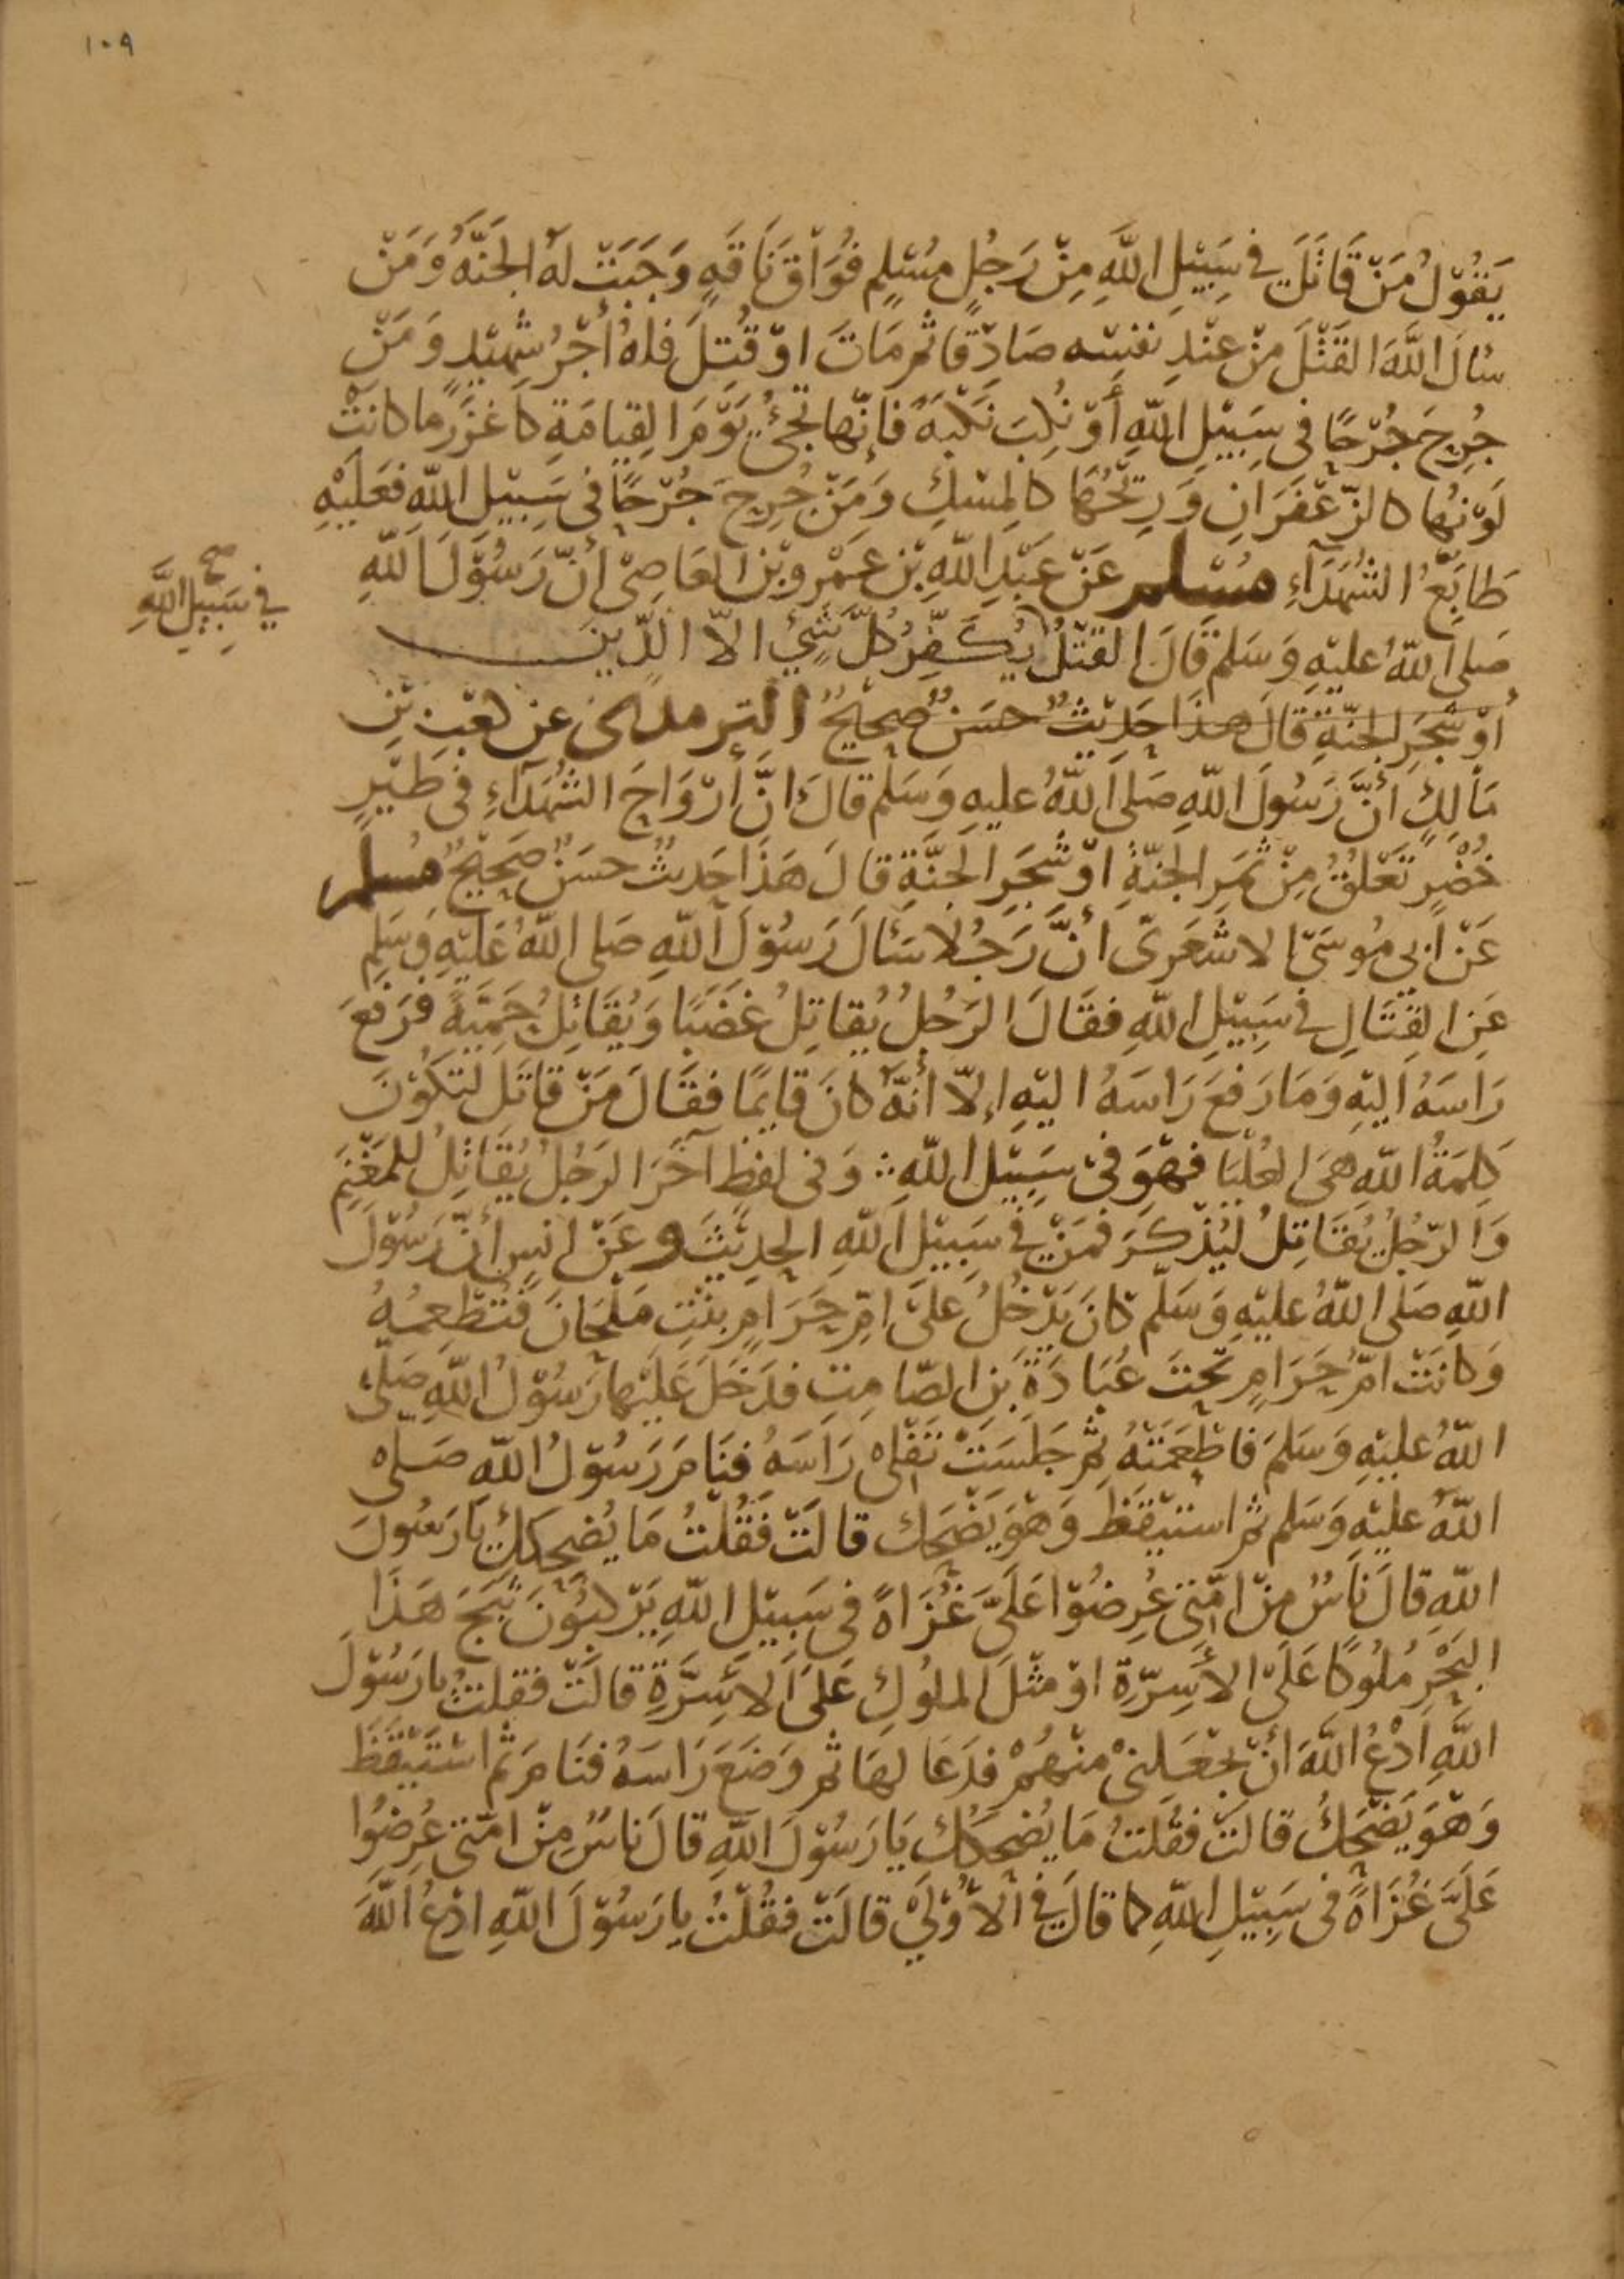 ١٠٩
يَقُوْلُ مَنْ قَاتَلَ فِي سَبِيْلِ اللَّهِ مِنْ رَجُلٍ مُسْلِمٍ فُوَاقَ نَاقَهٍ وَجَبَتْ لَهُ الجَنَّهُ وَمَنْ
سَالَ اللَّهَ القَتْلَ مِنْ عِنْدِ نفسِه صَادِقًا ثم مَاتَ اوْ قُتِلَ فَلهُ أجْرُ شَهِيْدٍ وَمَنْ
جُرِحَ جُرْحًا فى سَبِيْلِ اللّهِ أَوْ نُكِبَ نَكْبَةً فَإنّها تَجِئُ يَوْمَ القِيَامَةِ كاَغزَرِ ما كانَتْ
لَوْنهُا كالزّعْفَرَانِ وَرِيْحُهَا كالمِسْكِ وَمَنْ جُرِحَ جُرْحًا فى سَبِيْلِ اللّهِ فَعَلَيْهِ
طَابَعُ الشُهَدَآءِ مسْلم عَنْ عَبْدِ اللّهِ بْنِ عَمْرِو بْنِ العَاصِىْ أنّ رَسُوْلَ اللّهِ
صح
في سَبِيلِ اللَّهِ
صَلى اللّهُ عليْهِ وَسَلم قَالَ القتْلُ يُكَفِّرُ كُلَّ شَئٍ الاّ الدَّينَ
أوْ شَجَرِ الجنّةِ قَالَ هذَا حَدِيْثٌ حسَنٌ صَحِيْحٌ الترمذى عن كعْبِ بْنِ
مَالِكٍ أنَّ رَسُولَ اللّهِ صَلى اللّهُ عليهِ وَسَلم قالَ انَّ أرْوَاحَ الشُهَدَآءِ فى طَيْرٍ
خُضْرٍ تَعْلُقُ مِنْ ثمَرِ الجنّةِ اوْ شَجَرِ الجَنَّةِ قالَ هَذَا حَدِيثٌ حسَنٌ صَحِيْحٌ مسلم
عَنْ أبي مُوسَىَ الاشعَرىّ انَّ رَجُلا سَئالَ رَسُوْلَ اللّهِ صَلى اللّهُ عَلَيْهِ وَسَلم
عَنِ القِتَالِ في سَبِيْلِ اللّهِ فقَالَ الرَجُلُ يُقاتِلُ غَضَبًا وَيُقَاتِلُ حَمِيَّةً فرَفعَ
رَاسَهُ اليْهِ وَمَا رَفعَ رَاسَهُ اليْهِ إلاّ أنّهُ كانَ قايِمًا فقَالَ مَنْ قاتَلَ لتَكُوْنَ
كلِمَةُ اللّهِ هىَ العُلْيَا فهوَ فىْ سَبِيْلِ اللّهِ ∴ وَفى لفظٍ آخَرَ الرَجُلُ يُقَاتِلُ للمَغْنَمِ
وَالرّجُلُ يُقَاتِلُ لِيُذْكَرَ فمَنْ فِي سَبِيْلِ اللّهِ الحَدِيْثَ وعَنْ انسٍ أنّ رَسُوْلَ
اللّهِ صَلى اللّهُ عليْهِ وَسَلّم كانَ يَدْخُلُ عَلىَ امِّ حَرَامٍ بنْتِ مَلحَانَ فتُطْعِمُهُ
وَكانَتْ امّ حَرَامٍ تَحْتَ عُبَادَةَ بنِ الصّامِتِ فدَخَلَ عَلَيْها رَسُوْلُ اللّهِ صَلى
اللّهُ عليْهِ وَسَلمَ فاطْعَمَتْهُ ثم جَلسَتْ تَفْلى رَاسَهُ فنَامَ رَسُوْلُ اللّهِ صَلى
اللّهُ عليْهِ وَسَلم ثم استيْقظ وَهْوَ يَضْحَك قالَتْ فَقُلْتُ مَا يُضْحِكُكَ يَا رَسُولَ
اللّهِ قالَ نَاسٌ مِنْ امّتى عُرِضُوْا عَلَىَّ غُزَاةً فى سَبِيْلِ اللّهِ يَرْكَبُوْنَ ثَبَجَ هَذَا
البَحْرِ مُلوُكًا عَلَى الأسِرّةِ اوْ مثْلَ الملوُكِ عَلىَ الأسِرَّةِ قالَتْ فقلتُ يا رَسُوْلَ
اللّهِ ادْعُ اللَّهَ انْ يجْعَلنىْ منْهُمْ فدَعَا لهَا ثم وَضَعَ رَاسَهُ فنَامَ ثم اسْتَيْقظَ
وَهْوَ يَضْحَكُ قالَتْ فقُلتُ مَا يُضْحِكُكَ يَا رَسُوْلَ اللّهِ قالَ نَاسٌ مِنْ امّتى عُرِضُوْا
عَلَىَّ غُزَاةً فى سَبِيْلِ اللّهِ كما قالَ في الأُوْلَىْ قالَتْ فقُلْتُ يا رَسُوْلَ اللّهِ ادْعُ اللَّهَ